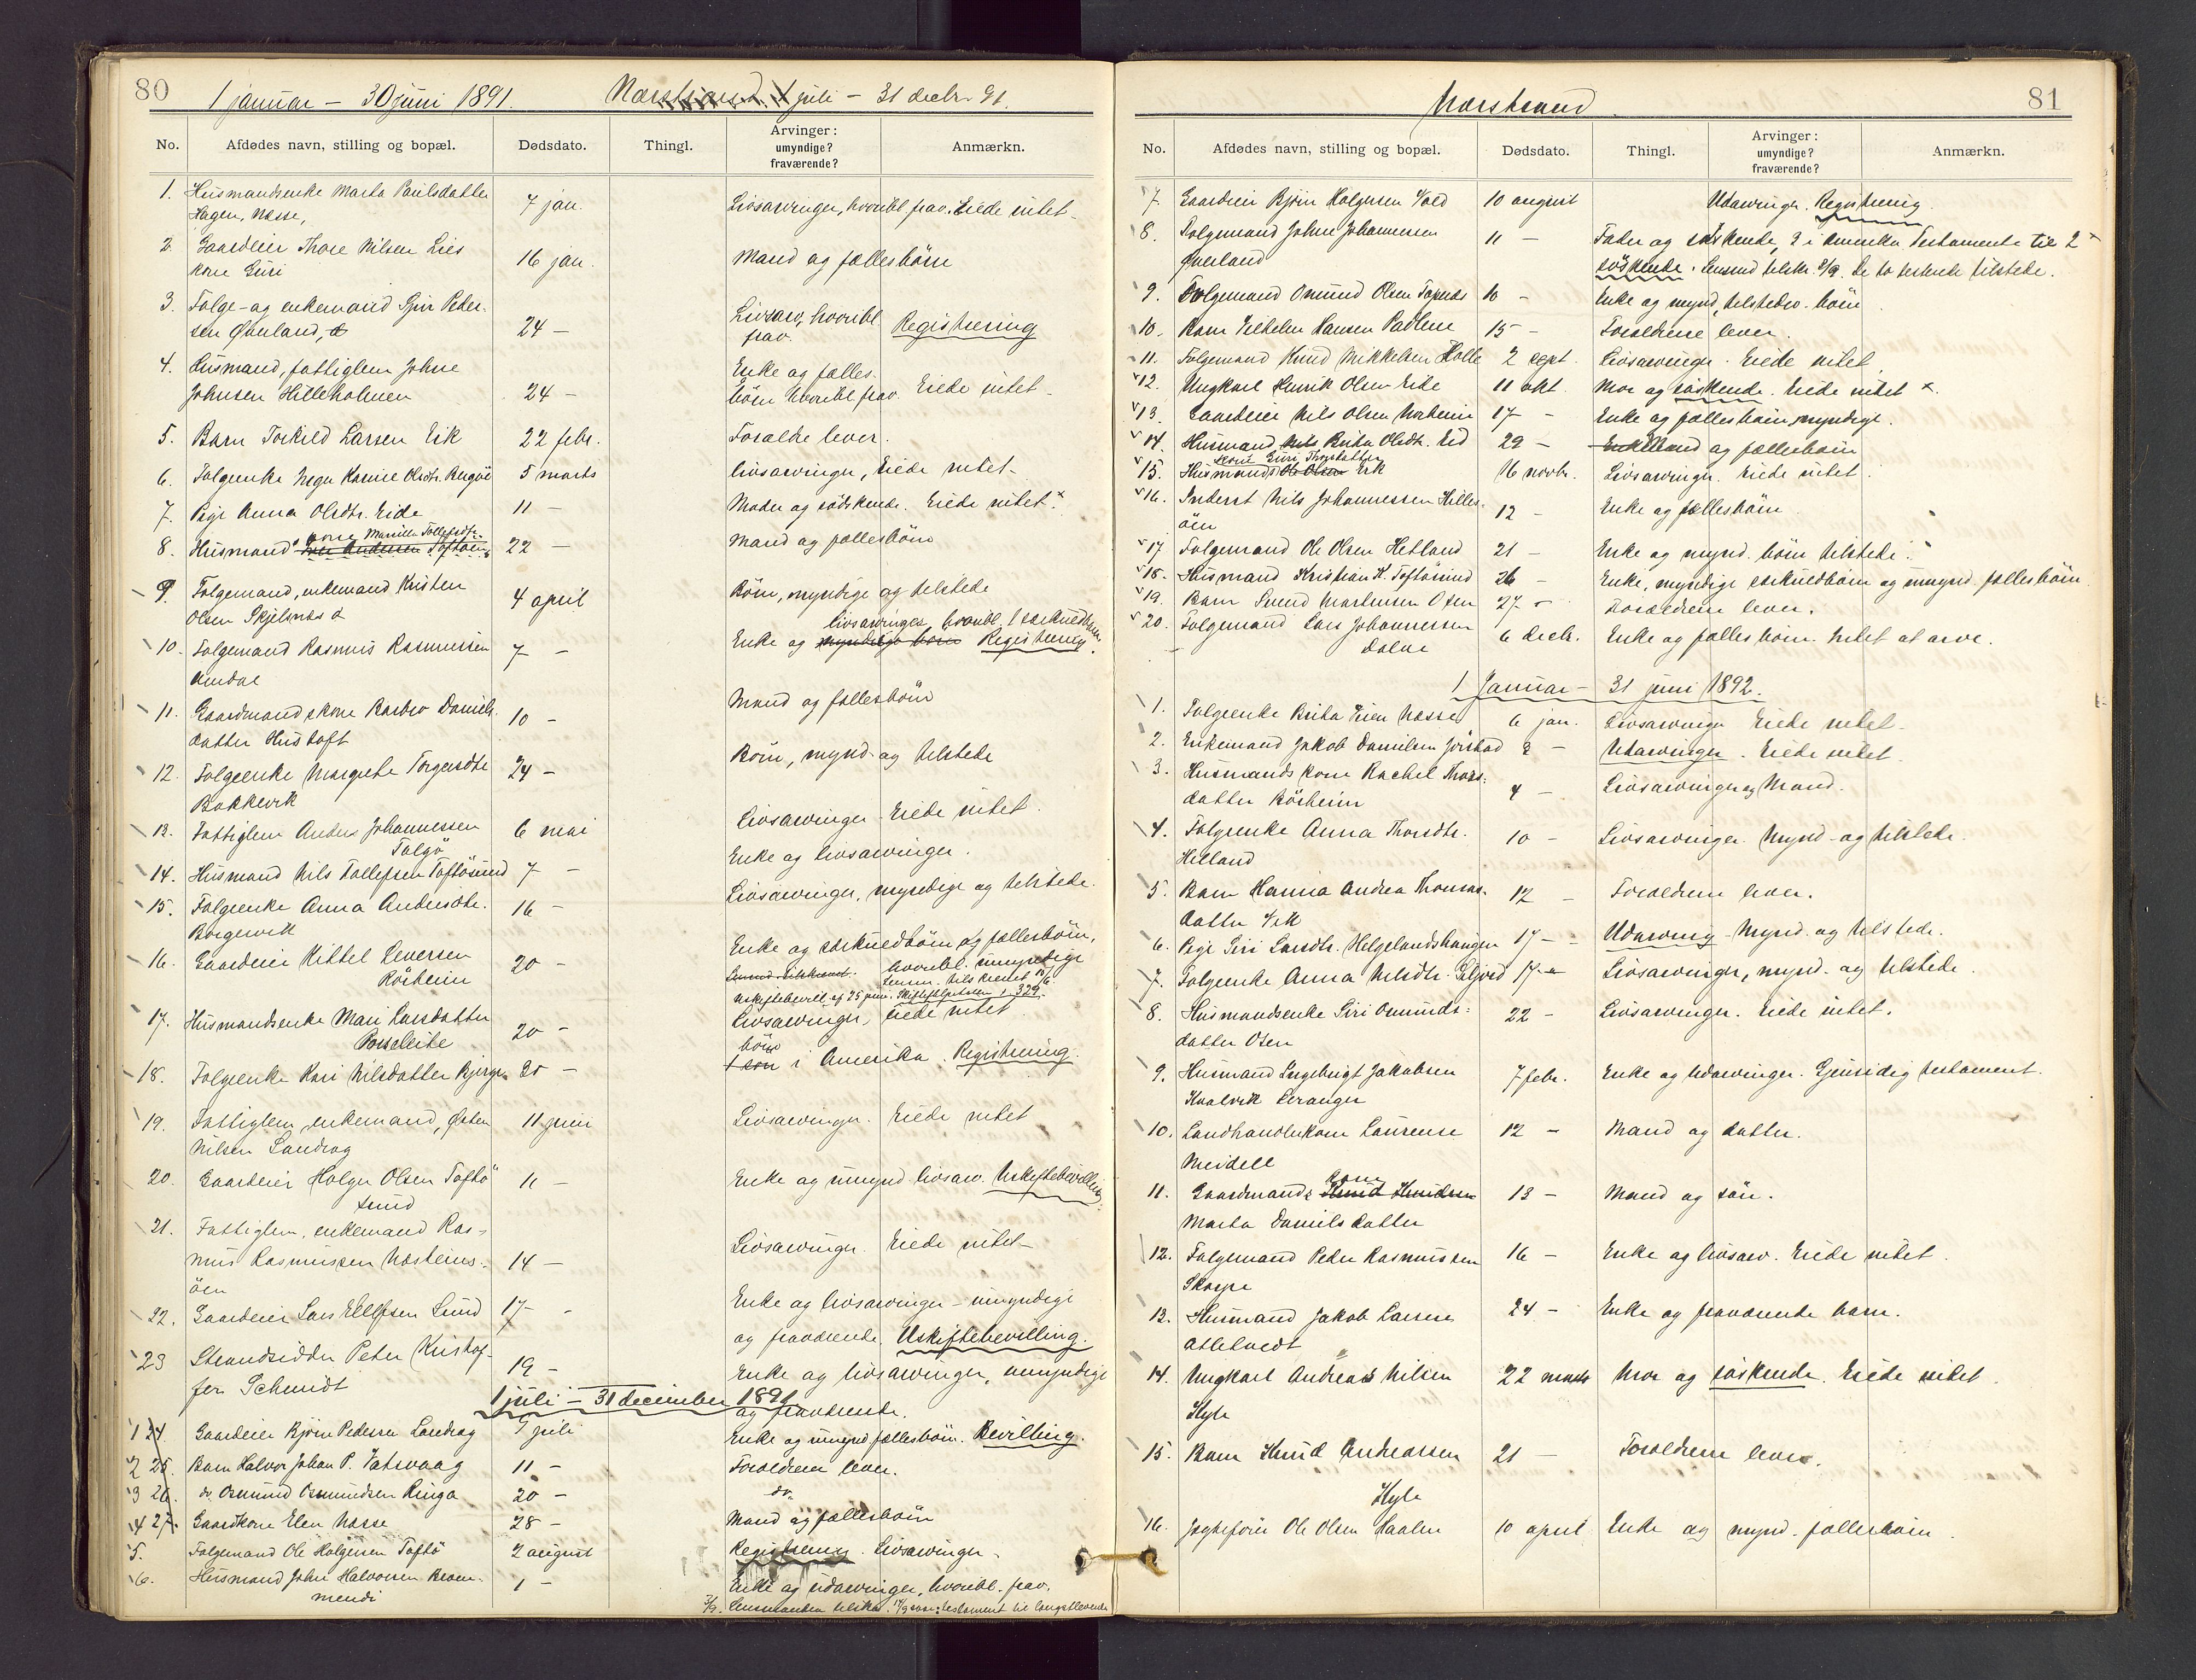 80
1 januar – 30 juni 1891. Nærstrand. 1 juli – 31 decbr. 91.
No. Afdødes navn, stilling og bopæl. Dødsdato. Thingl. Arvinger: umyndige? fraværende? Anmærkn.
1. Husmandsenke Marta Paulsdatter
Hagen, Næsse, 7 jan. Livsarvinger, hvoribl. frav. Eiede intet.
2. Gaardeier Thore Nilsen Lies
kone Guri 16 jan. Mand og fællesbörn
3. Folge- og enkemand Peder-
sen Øverland, 24 – Livsarv., hvoribl. frav. Registrering
4. Husmand, fattiglem Johne
Johnsen Hilleholmen 24 – Enke og fælles-
börn hvoribl. frav. Eiede intet.
5. Barn Torkild Larsen Eik 22 febr. Foræld. lever.
6. Folgeenke Olsdtr. 5 marts Livsarvinger, Eiede intet.
7. Pige Anna Olsdtr. Eide 11 – Moder og södskende. Eiede intet. x
8. Husmand kone Tollefsdtr. Iver Andersen Toftöen 22 – Mand og fællesbörn
9. Folgemand, enkemand Kristen
Olsen Skjelnæs 4 april Börn, myndige og tilstede
10. Folgemand Rasmus Rasmussen
7 – Enke og myndige börn livsarvinger, hvoribl. 1 særkuldbarn. Registrering
11. Gaardmandskone Barbro Daniels-
datter Hustoft 10 – Mand og fællesbörn
12. Folgeenke Margrete Torgersdtr.
Bakkevik 24 – Börn, mynd. og tilstede
13. Fattiglem Anders Johannessen
6 mai Livsarvinger. Eiede intet.
14. Husmand Nils Tollefsen Toftösund 7 – Enke og livsarvinger.
15. Folgeenke Anna Andersdtr.
Borgevik 16 – Livsarvinger, myndige og tilstede.
16. Gaardeier Kittel Leversen
20 – Enke og særkuldbörn og fællesbörn,
hvoribl. umyndige
Uskiftebevill. af 25 juni. 329.
17. Husmandsenke Mari Larsdatter
20 – Livsarvinger, eiede intet
18. Folgeenke Kari Nilsdatter 20 – 1 sön börn i Amerika. Registrering.
19. Fattiglem, enkemand, Østen
Nilsen Landrog 11 juni Livsarvinger. Eiede intet
20. Gaardeier Holger Olsen Toftö
sund 11 – Enke og umynd. livsarv. Uskiftebevilling.
21. Fattiglem, enkemand Ras-
mus Rasmussen
öen 14 – Livsarvinger. Eiede intet.
22. Gaardeier Lars Ellefsen Lund 17 – Enke og livsarvinger – umyndige
og fraværende. Uskiftebevilling.
23 Strandsidder Peter Kristof-
fer Schmidt 19 – Enke og livsarvinger, umyndige
og fraværende.
1 juli – 31 december 1891
1 24. Gaardeier Björn Pedersen Landrog 7 juli Enke og umynd. fællesbörn. Bevilling.
2 25. Barn Halvor Johan P. Vatsvaag 11 – Forældrene lever.
3 26. do. Osmund Osmundsen Ringa 20 – do.
4 27. Gaardkone Elen Næsse 28 – Mand og fællesbörn
5. Folgemand Ole Holgersen Toftö 2 august Registrering. Livsarvinger.
6. Husmand John Halvorsen
1 – Enke og udarvinger, hvoribl. frav.
Lensmanden tilskr. testament til længstlevende
81
Nærstrand.
No. Afdødes navn, stilling og bopæl. Dødsdato. Thingl. Arvinger: umyndige? fraværende? Anmærkn.
7. Gaardeier Björn Holgersen 10 august Udarvinger. Registrering
8. Folgemand John Johannessen
Øverland 11 – Fader og söskende, 2 i Amerika. Testamente til 2
söskende. tilstede.
9. Folgemand Omund Olsen 10 – Enke og mynd., tilstedev. börn
10. Barn Vilhelm Hansen Padlene 15 – Forældrene lever.
11. Folgemand Knud Mikkelsen 2 sept. Livsarvinger. Eiede intet
12. Ungkarl Henrik Olsen Eide 11 okt. Mor og söskende. Eiede intet x.
13. Gaardeier Nils Olsen 17 – Enke og fællesbörn, myndige.
14. Husmand Nils Brita Olsdtr. Eid 29 – Enke Mand og fællesbörn
15. Husmands kone Guri Thorsdatter Ole Olsen Eik 16 novbr. Livsarvinger. Eiede intet.
16. Inderst Nils Johannessen Hilles-
öen 12 – Enke og fællesbörn
17 Folgemand Ole Olsen Hetland 21 – Enke og mynd. börn tilstede.
18. Husmand Kristian K. Toftösund 26 – Enke, myndige særkuldbörn og umynd. fællesbörn
19. Barn Svend Martinsen Osen 27 – Forældrene lever.
20. Folgemand Lars Johannessen
Dalve 6 decbr. Enke og fællesbörn. Intet at arve.
1 Januar – 31 juni 1892.
1. Folgeenke Brita Næsse 6 jan. Livsarvinger Eiede intet.
2. Enkemand Jakob Danielsen 2 – Udarvinger. Eiede intet.
3. Husmands kone Rachel Thors-
datter 4 – Livsarvinger og Mand.
4. Folgeenke Anna Thorsdtr.
Hetland 10 – Livsarvinger. Mynd. og tilstede.
5. Barn Hanna Andrea Thomas-
datter 12 – Forældrene lever.
6. Pige Siri Larsdtr. Helgelandshaugen 17 – Udarving. Mynd. og tilstede.
7. Folgeenke Anna Nilsdtr. 17 – Livsarvinger, mynd. og tilstede.
8. Husmandsenke Siri Omunds-
datter Osen 22 – Livsarvinger. Eiede intet.
9. Husmand Ingebrigt Jakobsen
Kvalvik Leranger 7 febr. Enke og udarvinger. Gjensidig testament.
10. Landhandlerkone Laurense
Meidell 12 – Mand og datter.
11. Gaardmands kone Knud Knudsen
Marta Danielsdatter 13 – Mand og sön.
12. Folgemand Peder Rasmussen
Skorpe 16 – Enke og livsarv. Eiede intet.
13. Husmand Jakob Larsen
24 – Enke og fraværende barn.
14. Ungkarl Andreas Nilsen
Hyle 22 marts Mor og söskende. Eiede intet.
15. Barn Knud Andreassen
Hyle 21 – Forældrene lever.
16. Jægtefører Ole Olsen 10 april Enke og mynd. fællesbörn.